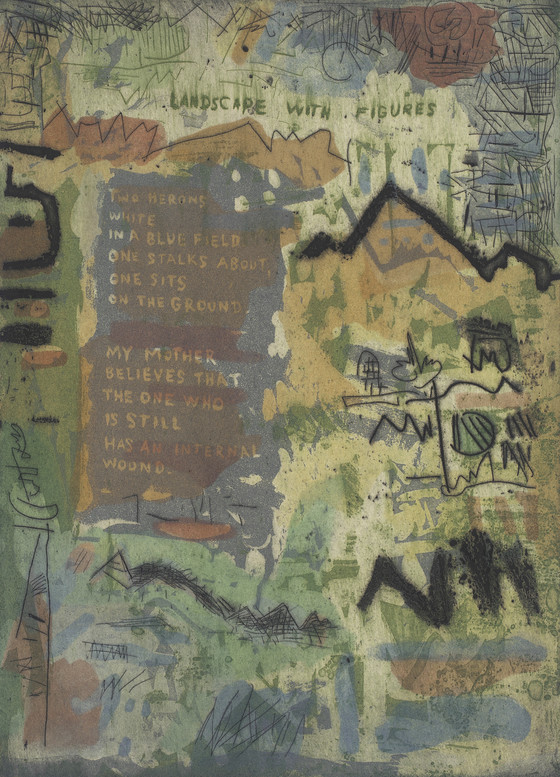 LANDSCAPE WITH FIGURES
TWO HERONS
WHITE
IN A BLUE FIELD
ONE STALKS ABOUT,
ONE SITS
ON THE GROUND.
MY MOTHER
BELIEVES THAT
THE ONE WHO
IS STILL
HAS AN INTERNAL
WOUND.